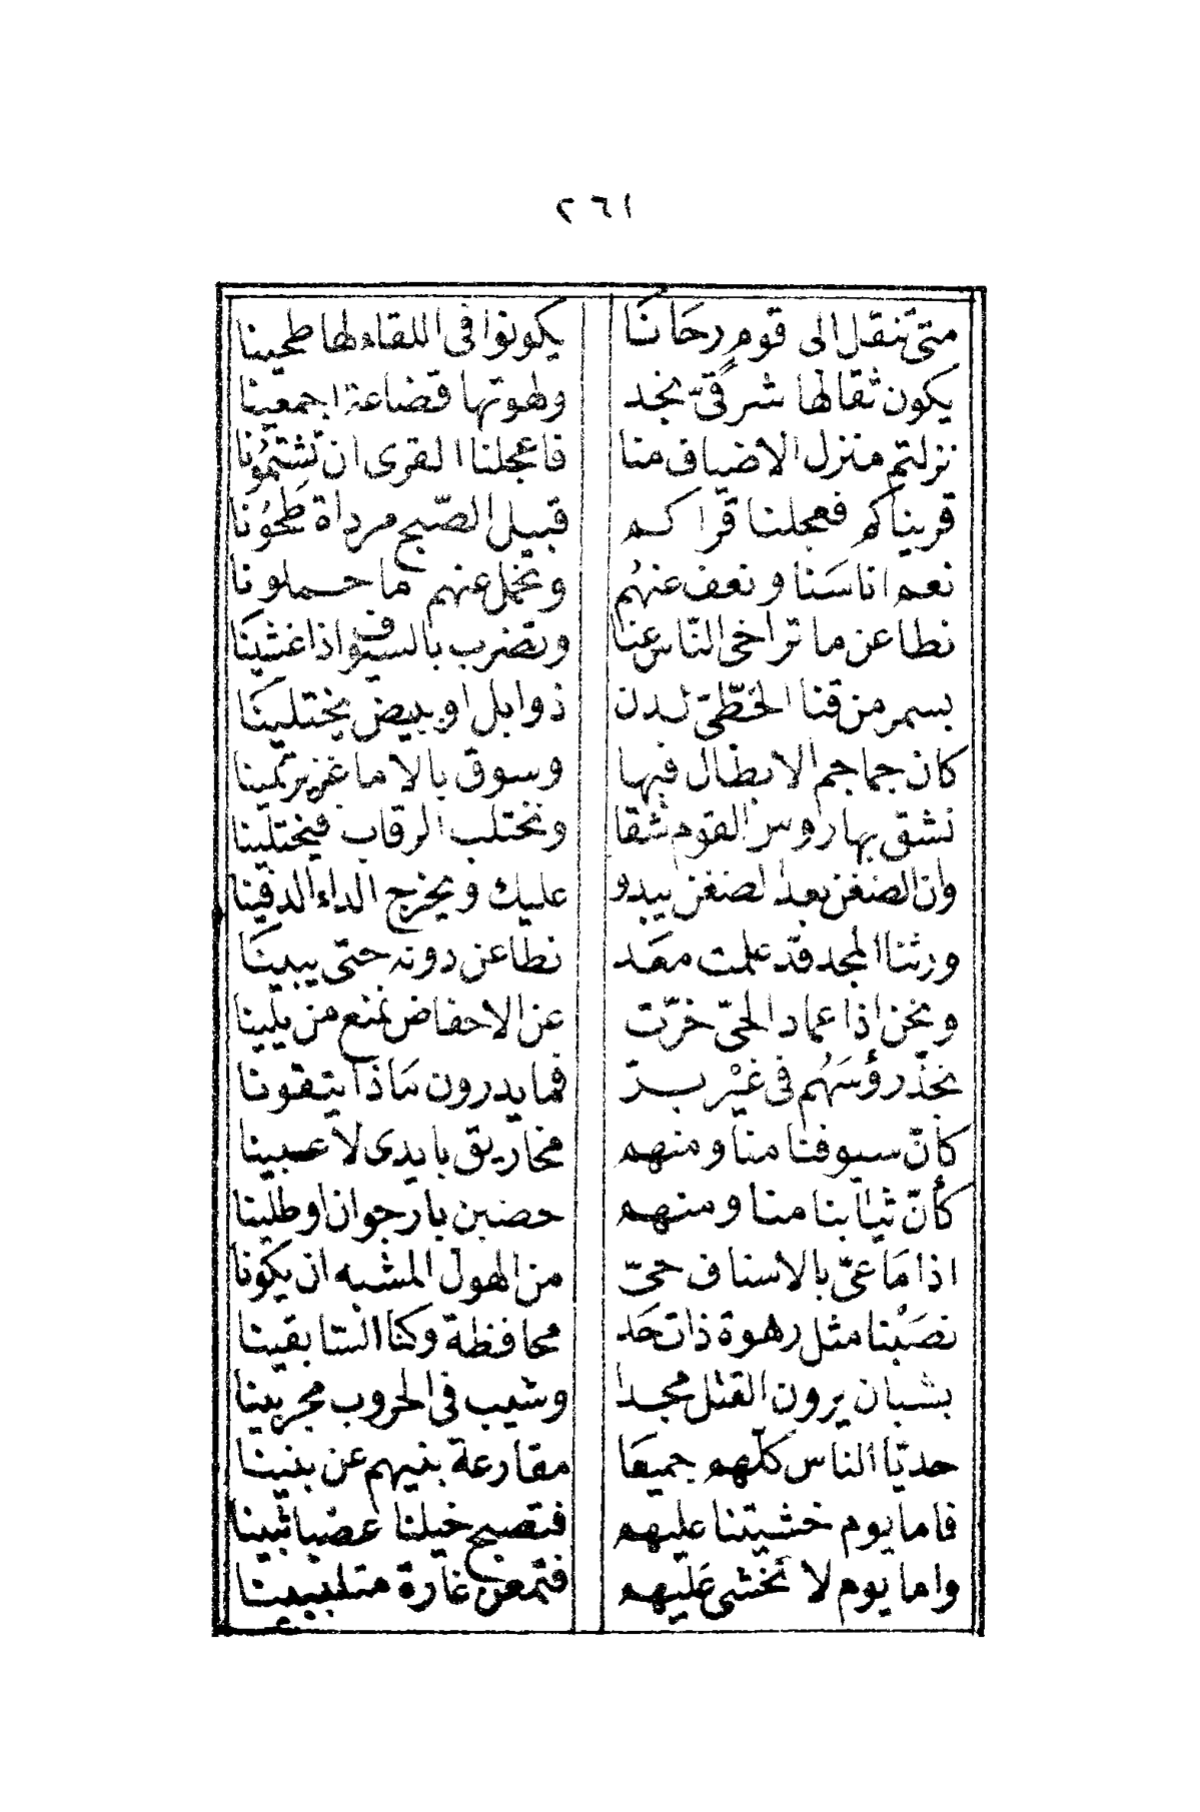 ٢٦١
متى تنقل الى قومٍ رحَاننَا يكونوا فى اللقاء لها طحينا
يكون ثقالها شرقىّ نجد ولهوتها قضاعة اجمعينا
نزلتم منزل الاضياف منا فاعجلنا القرى ان تشتمُونا
قريناكم فعجلنا قراكم قبيل الصّبح مرداة طَحُونا
نعم اناسَنا ونعف عنهُم ونحمل عنهم ما حملونا
نطاعن ما تراخى النّاس عنا ونضرب بالسيوف اذا غشينَا
بسمر من قنا الخطّىّ لدن ذوابل او ببيض يختلينَا
كان جماجم الابطال فيها وسوق بالاماغز يرتمينا
نشق بها روس القوم شقا ونختلب الرقاب فيختلينا
وان الضغن بعد الضغن يبدو عليك ويخرج الداء الدفينا
ورثنا المجد قد علمت معَد نطاعن دونه حتّى يبينَا
ونحن اذا عماد الحىّ خرّت عن الاحفاض نمنع من يلينا
نجذّ رؤسَهُم فى غيْر برّ فما يدرون مَاذا يتقونا
كأنّ سيوفنا منا ومنهم مخاريق بايدى لاعبينا
كأنّ ثيابنا منا ومنهم خضبن بارجوان او طلينا
اذا مَا عىّ بالاسناف حىّ من الهول المشبه ان يكونا
نصَبْنا مثل رهوة ذات حَد محافظة وكنا السّابقينا
بشبان يرون القتل مجدا وشيب فى الحروب مجربينا
حديّا الناس كلّهم جميعَا مقارعة بنيهم عن بنينا
فاما يوم خشيتنا عليهم فتصبح خيلنا عصبا ثبينا
واما يوم لا نخشى عَليهم فنمعن غارة متلببينا